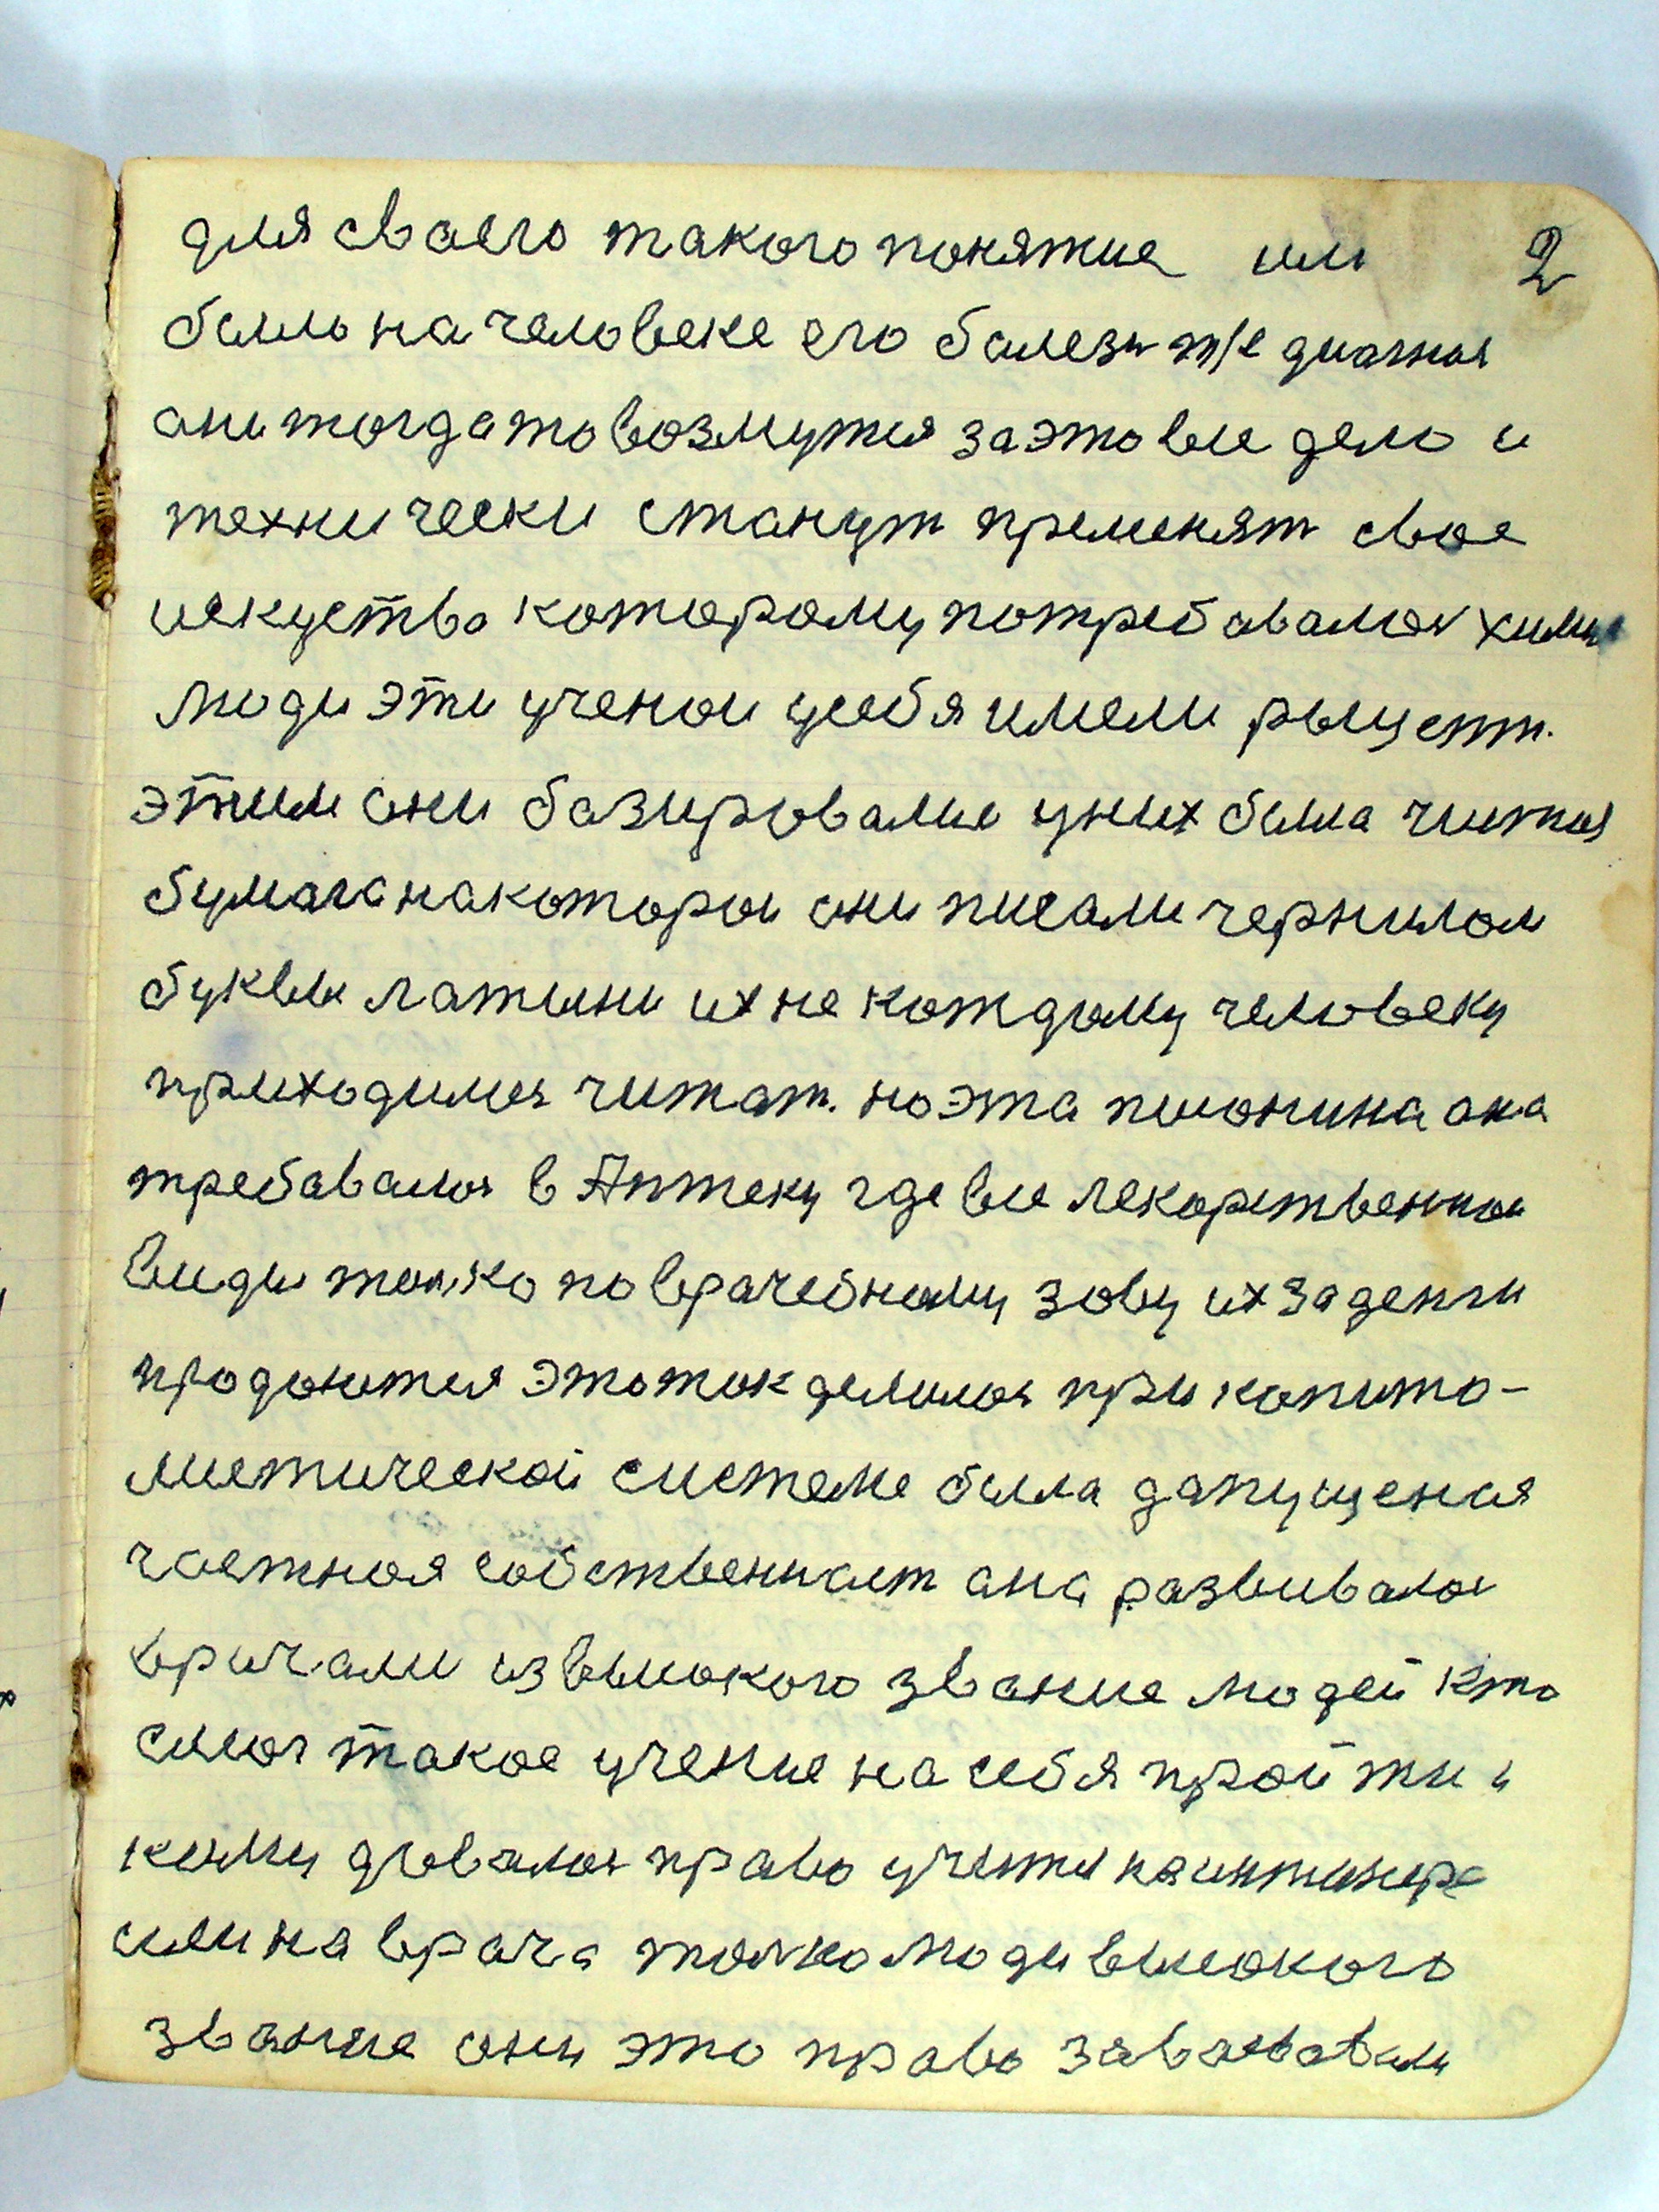 для своего такого понятие или 2
было на человеке его болезн т/е диагноз
они тогда то возмутся за это все дело и
технически станут пременят свое
искуство которому потребавалос химия
люди эти ученои у себя имели рыцепт.
этим они базировалис у них была читая
бумага на которои они писали чернилом
буквы латыни их не каждому человеку
приходилос читат. но эта писонина она
требавалос в Аптеку где все лекарственнои
види толко по врачебному зову их за денги
продоются это так делалос при капита-
листической системе была дапущеная
частная собственност она развивалос
врачами из высокого звание людей кто
смог такое учение на себя пройти и
кому довалос право учится на интинера
или на врача толко люди высокого
звание они это право завоевовали